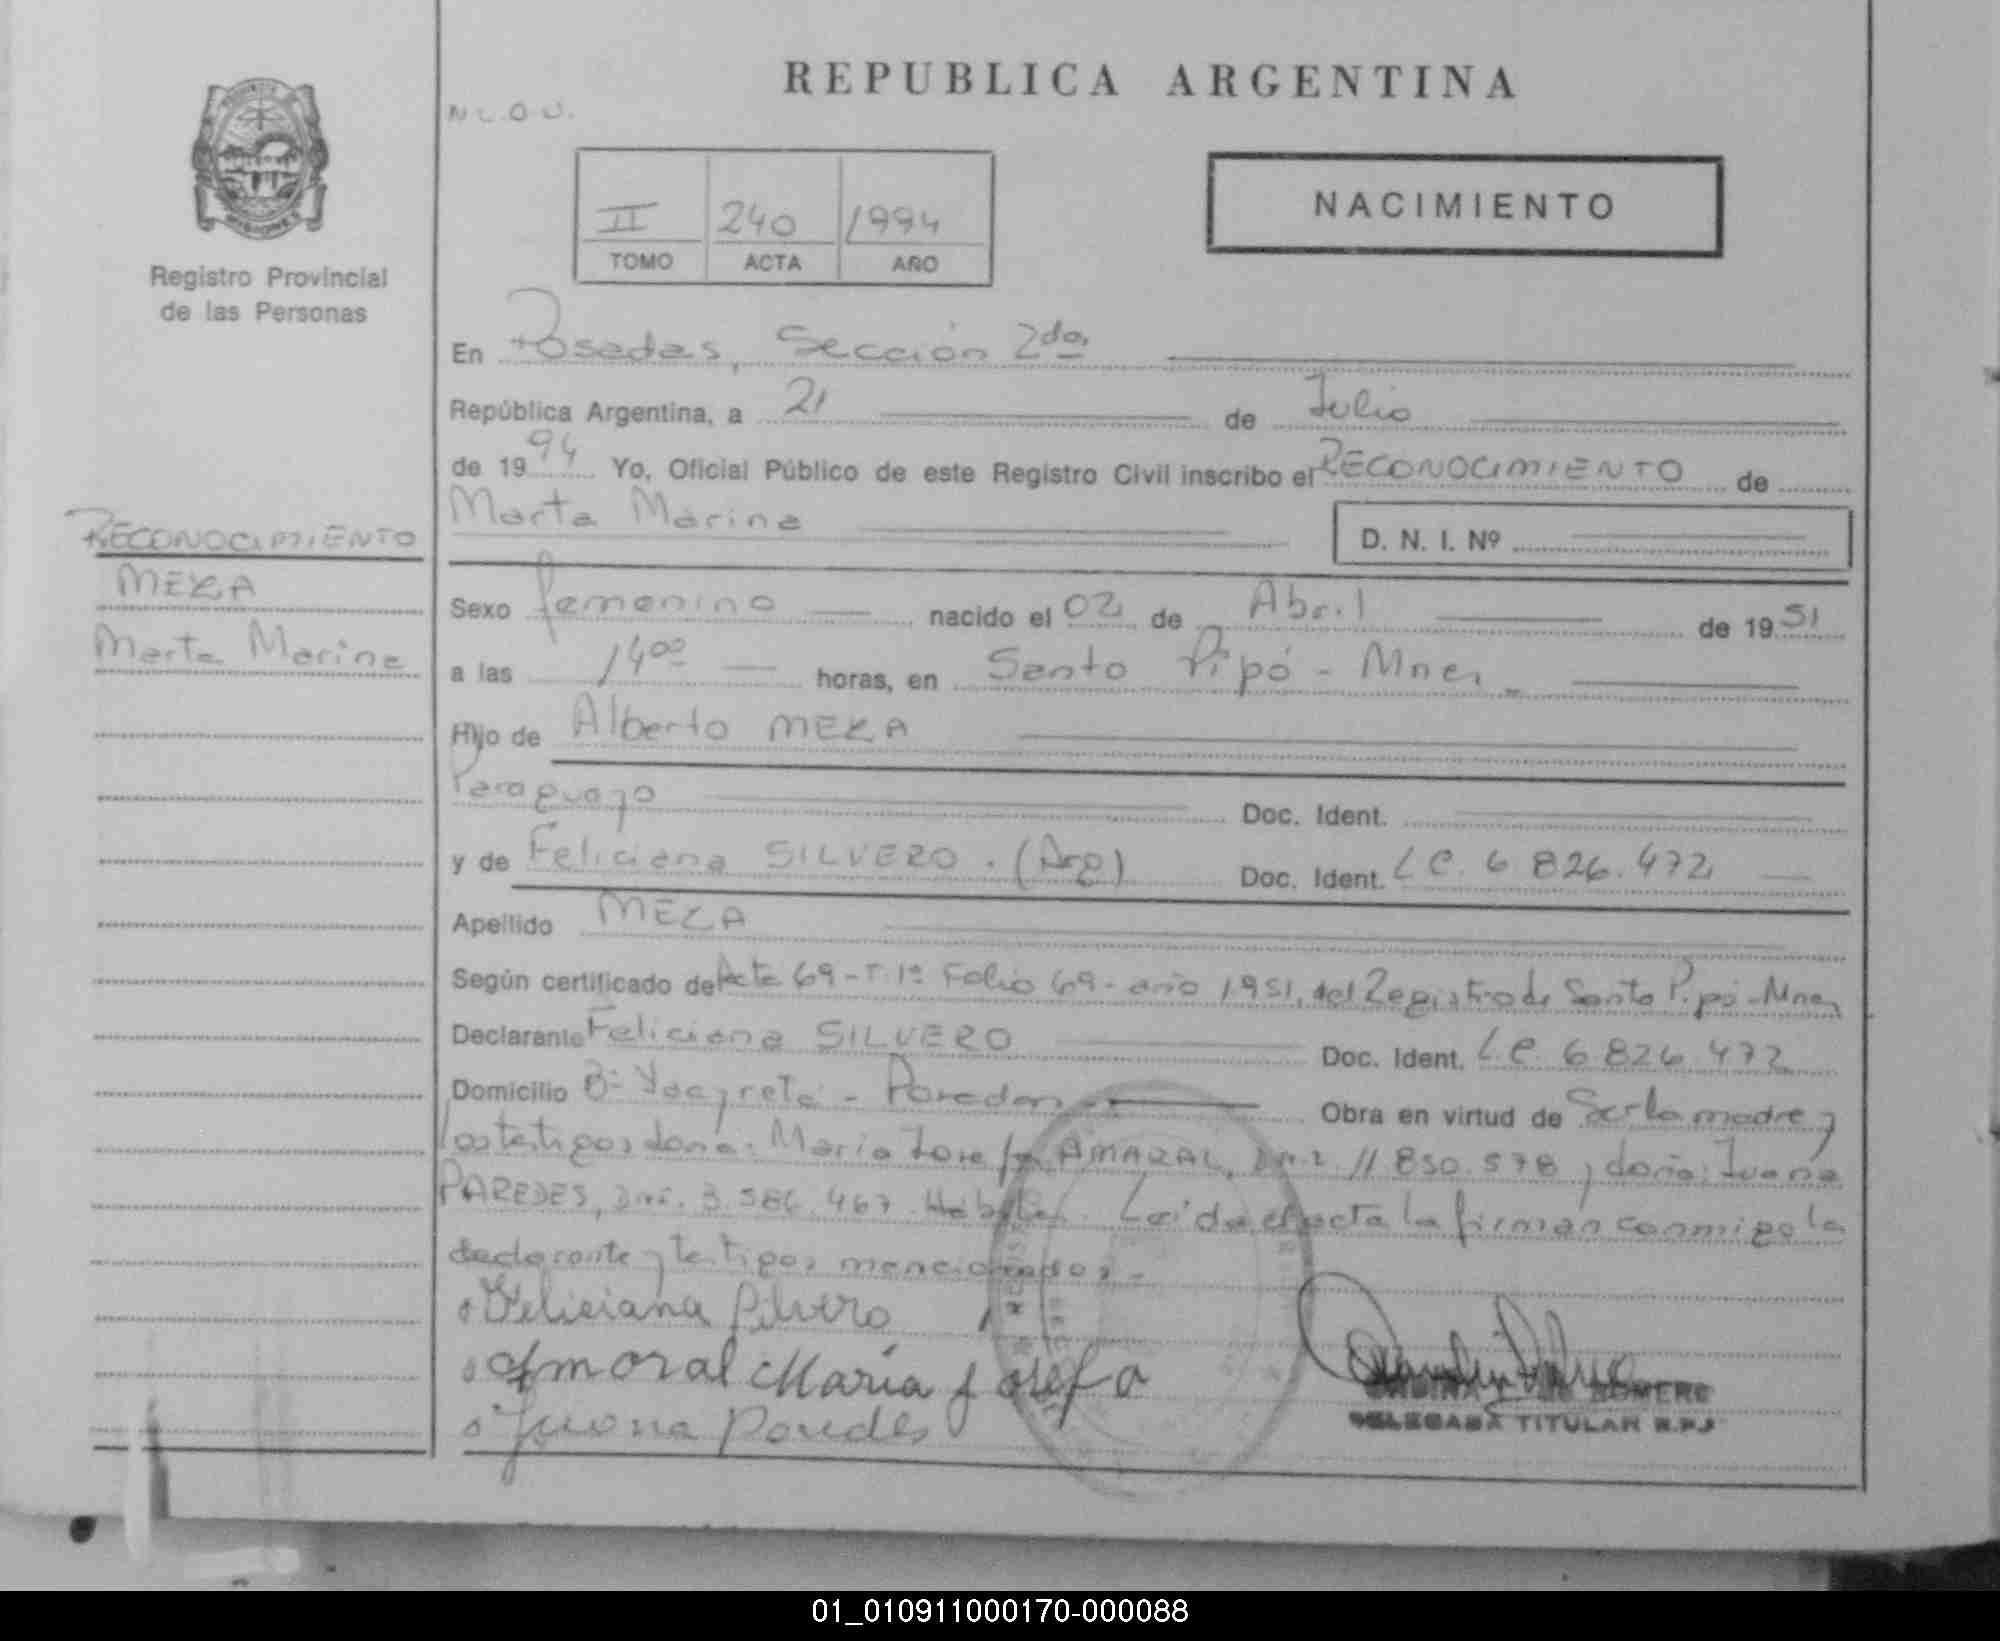 REPUBLICA ARGENTINA
N L.O.U.
II 240 1994
TOMO ACTA AÑO
NACIMIENTO
Registro Provincial
de las Personas
RECONOCIMIENTO
MEZA
Marta Marina
En Posadas, Sección 2da
República Argentina, a 21 de Julio
de 1994 Yo, Oficial Público de este Registro Civil inscribo el RECONOCIMIENTO de
Marta Marina D. N. I. Nº
Sexo femenino nacido el 02 de Abril de 1951
a las 14 00 horas, en Santo Pipó - Mnes
Hijo de Alberto MEZA
Paraguayo Doc. Ident.
y de Feliciana SILVERO. (Arg) Doc. Ident. LC. 6 826.472
Apellido MEZA
Según certificado de Acta 69 - T. 1º Folio 69 - año 1951, del Registro de Santo Pipó - Mnes
Declarante Feliciana SILVERO Doc. Ident. L.C. 6 826 472
Domicilio Bº Yacyretá - Posadas Obra en virtud de Ser la madre y
los testigos doña: María Josefa AMARAL, DNI. 11 850.578 y doña: Juana
PAREDES, DNI. 3.586.467. Hábiles. Leída el acta la firman conmigo la
declarante y testigos mencionados -
Feliciana Silvero
Amaral María Josefa
Juana Paredes
ROMERO
DELEGADA TITULAR R.P.J
01_010911000170-000088